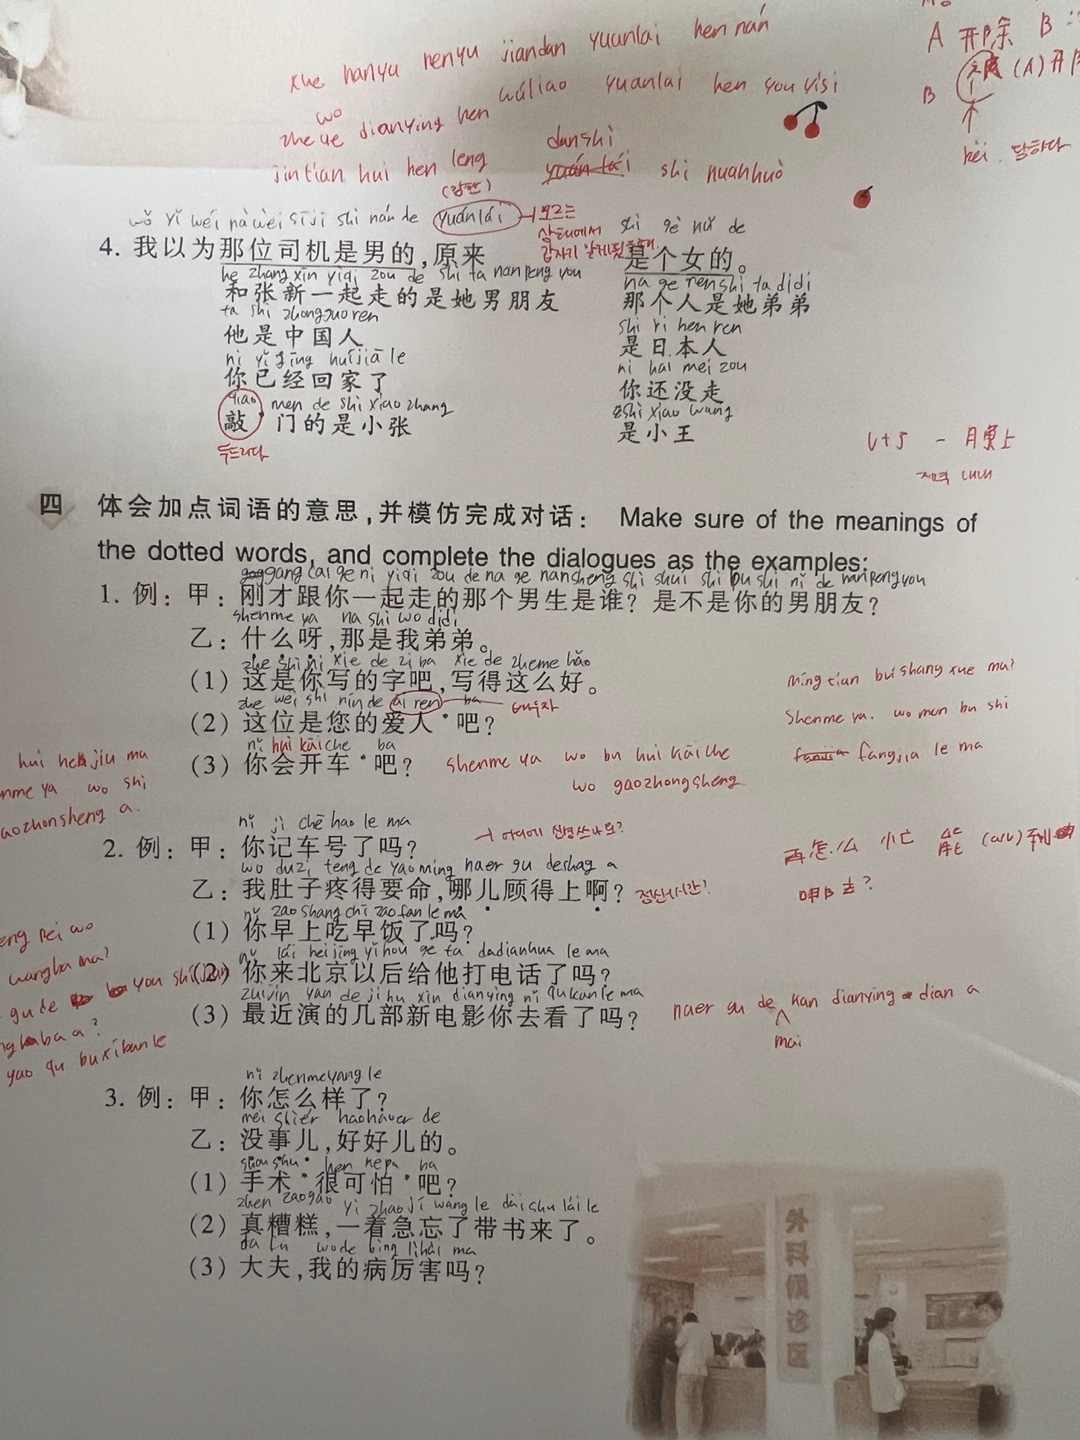 xue hanyu henyu jiandan yuanlai hen nán
A 开除 B
wo
zhe ye dianying hen wúliao yuanlai hen you yisi
B 被 (A) 开
bèi. 당하다
jintian hui hen leng danshi shi nuanhuò
(감탄)
wǒ yǐ wéi nàwèi sījī shì nán de yuánlái → 모르는 상태에서 갑자기 알게됐을때. shì gè nǚ de
4. 我以为那位司机是男的,原来 是个女的。
he zhang xin yiqi zou de shi ta nanpengyou na ge ren shi ta didi
和张新一起走的是她男朋友 那个人是她弟弟
ta shi zhongguoren shi ri ben ren
他是中国人 是日本人
ni yǐ jīng huíjiā le ni hai mei zou
你已经回家了 你还没走
qiao men de shi xiao zhang shi xiao wang
敲门的是小张 是小王
두드리다
V+了 - 晚上
저녁
四 体会加点词语的意思,并模仿完成对话: Make sure of the meanings of
the dotted words, and complete the dialogues as the examples:
gang cai ge ni yiqi zou de na ge nansheng shi shui shi bu shi ni de nanpengyou
1. 例:甲:刚才跟你一起走的那个男生是谁?是不是你的男朋友?
shenme ya na shi wo didi
乙:什么呀,那是我弟弟。
zhe shi ni xie de zi ba xie de zheme hǎo
(1) 这是你写的字吧,写得这么好。
míng tian bu shang xue ma?
zhe wei shi nin de ai ren ba 배우자
(2) 这位是您的爱人吧?
shenme ya. wo men bu shi
fangjia le ma
nǐ huì kāiche ba
(3) 你会开车吧? shenme ya wo bu hui kāi che
wo gaozhongsheng
hui he jiu ma
nme ya wo shi
aozhonsheng a.
nǐ jì chē hao le ma → 어디에 신경쓰나요?
2. 例:甲:你记车号了吗?
wo duzi teng de yaoming naer gu deshag a
乙:我肚子疼得要命,哪儿顾得上啊? 정신/시간?
再怎么 忙 能 到
nǐ zao shang chī zao fan le ma
(1) 你早上吃早饭了吗?
nǐ lái beijīng yǐhou ge ta dadianhua le ma
(2) 你来北京以后给他打电话了吗?
zuijin yan de ji bu xin dianying nǐ qu kan le ma
(3) 最近演的几部新电影你去看了吗? naer gu de kan dianying dian a
mai
yao qu buxiban le
nǐ zhenmeyang le
3. 例:甲:你怎么样了?
mei shìer haohaoer de
乙:没事儿,好好儿的。
shou shu hen kepa ba
(1) 手术很可怕吧?
zhen zaogao yì zhaojí wàng le dài shu lái le
(2) 真糟糕,一着急忘了带书来了。
da fu wo de bìng lìhài ma
(3) 大夫,我的病厉害吗?
外科候诊区